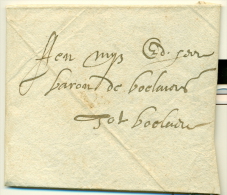 Aen myn
baron de boelaere
tot boelaere